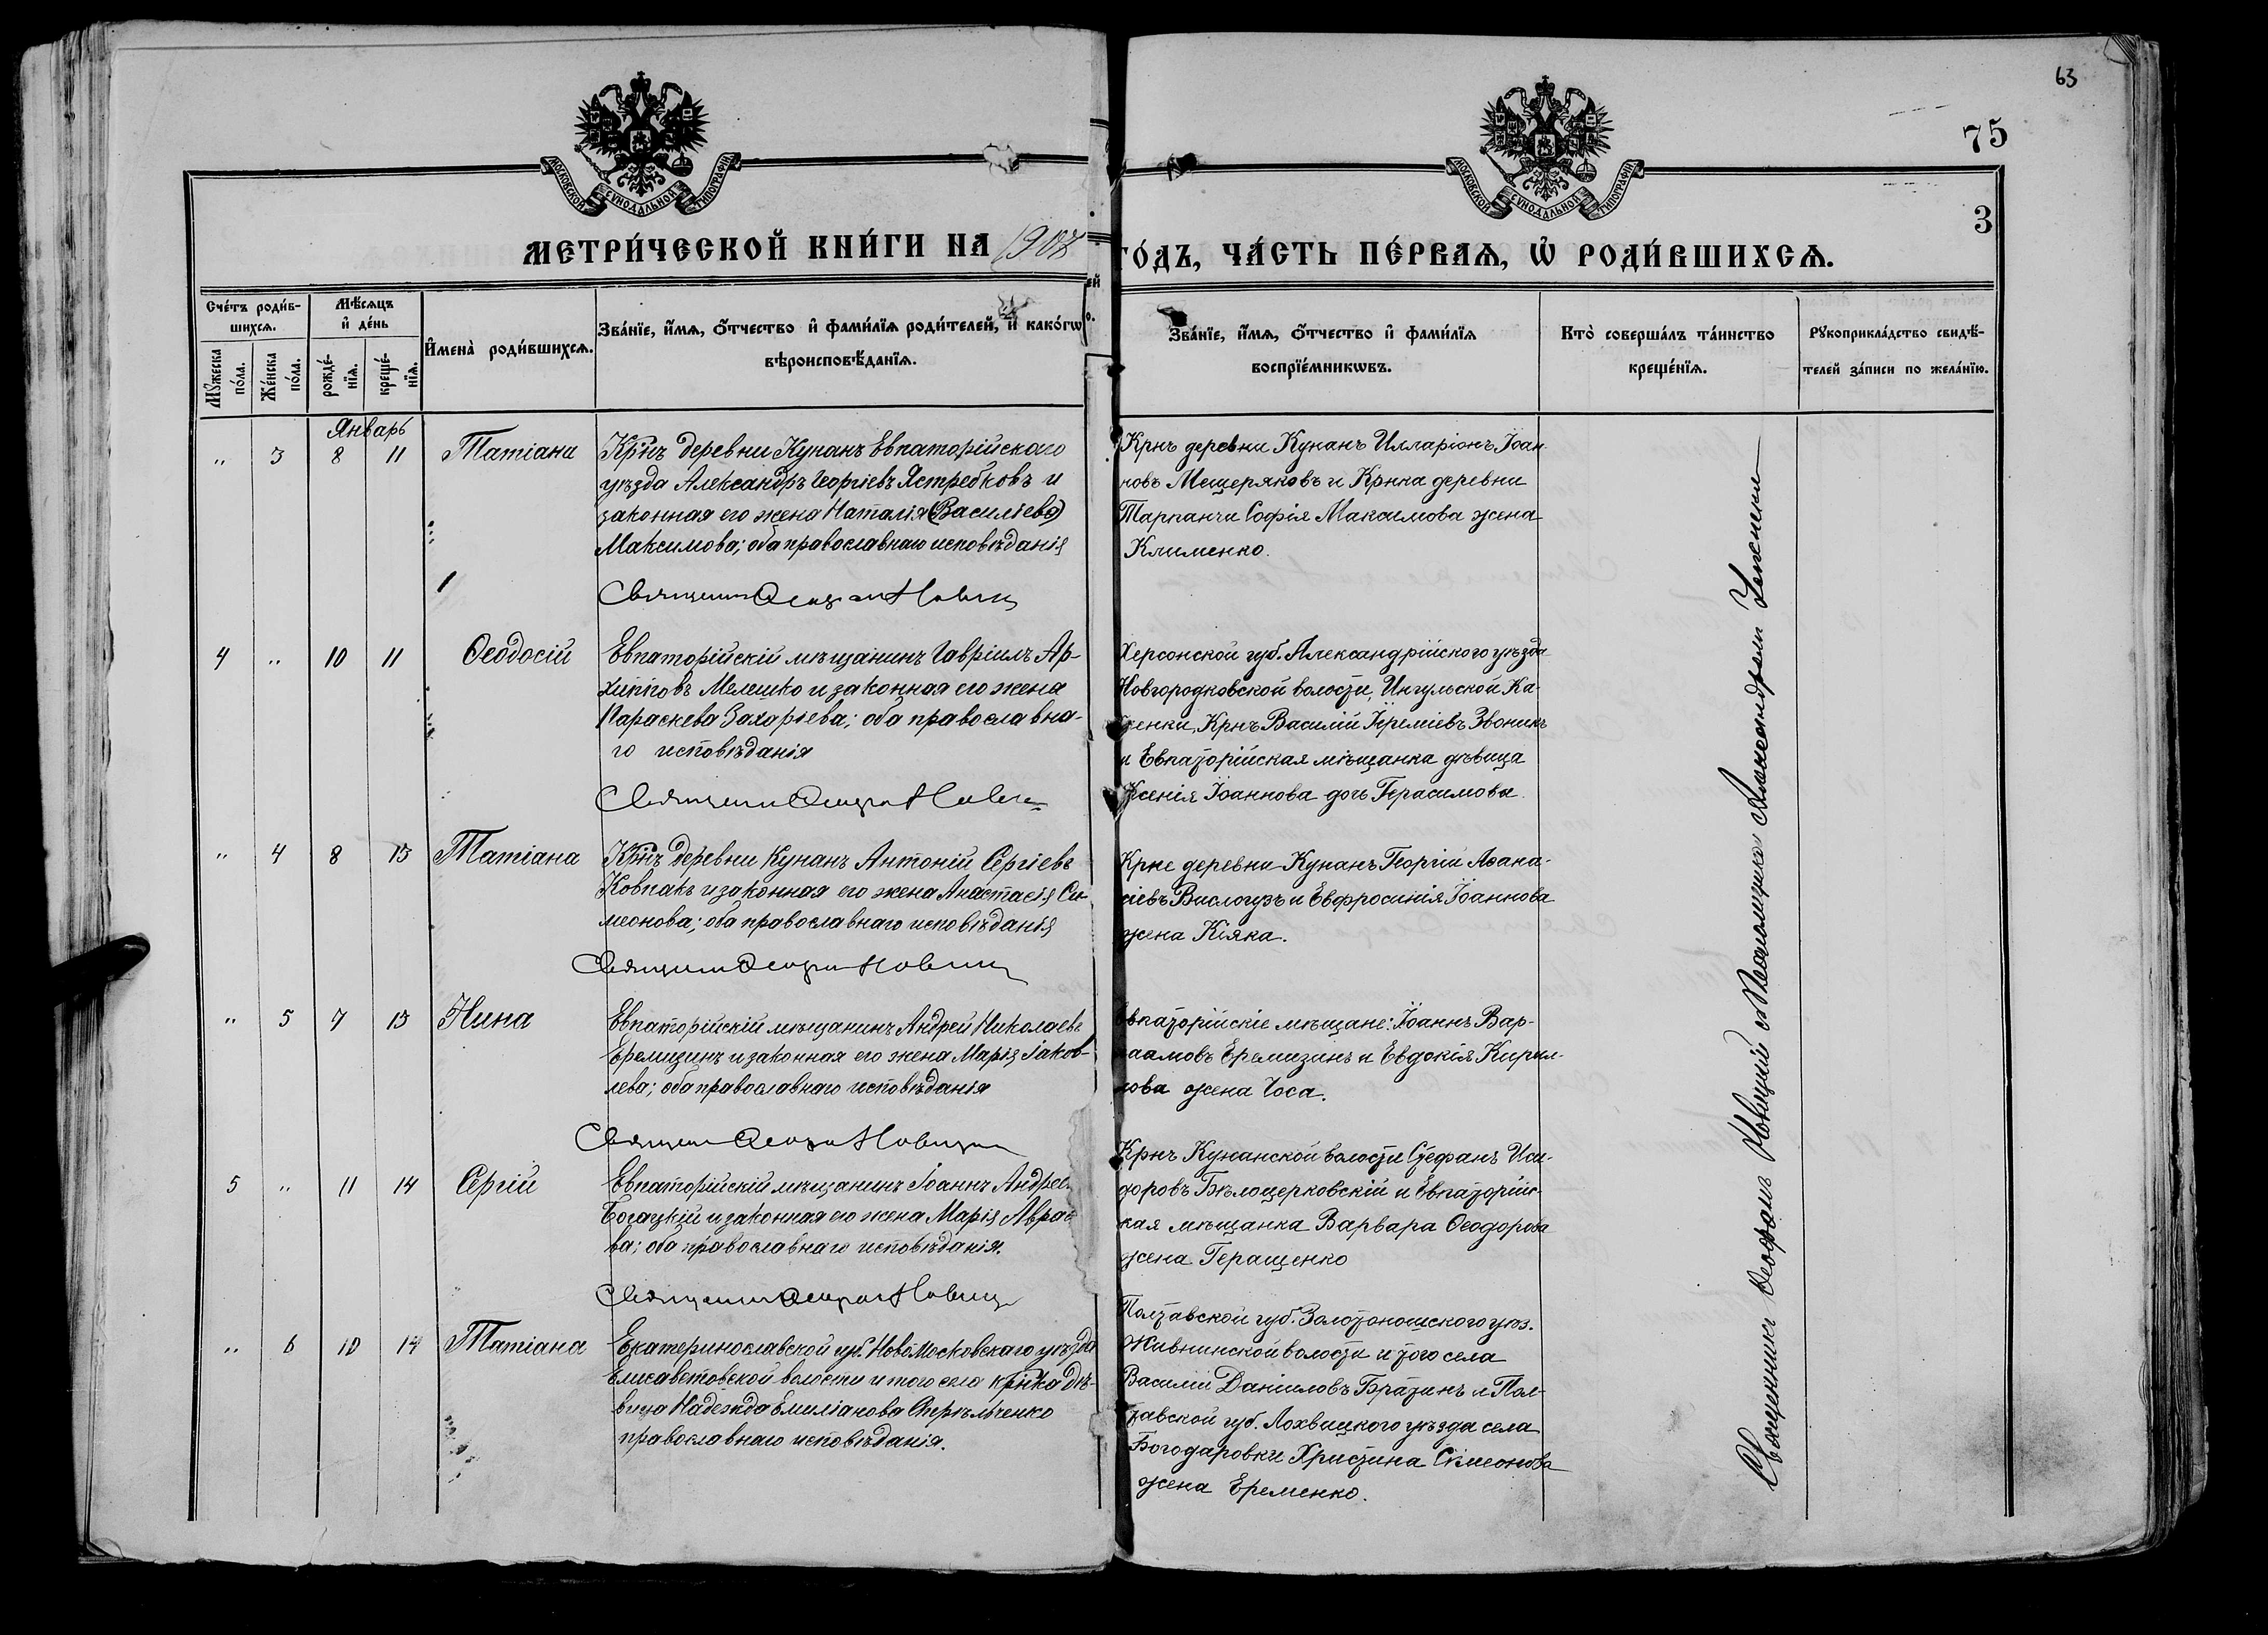 63
75
3
МОСКОВСКОЙ СѴНОДАЛЬНОЙ ТИПОГРАФІИ
МОСКОВСКОЙ СѴНОДАЛЬНОЙ ТИПОГРАФІИ
МЕТРИ́ЧЕСКОЙ КНИ́ГИ НА 1908
ГО́ДЪ, ЧА́СТЬ ПЕ́РВАѦ, Ѡ҆ РОДИ́ВШИХСѦ.
Сче́тъ роди́в-
шихсѧ.
Мꙋжеска по́ла.
Же́нска по́ла.
Мѣ́сѧцъ
и҆ де́нь
рожде́-нїѧ.
креще́-нїѧ.
И҆мена̀ роди́вшихсѧ.
Зва́нїе, и҆́мѧ, ѻ҆́тчество и҆ фами́лїѧ роди́телей, и҆ како́гѡ
вѣроисповѣ́данїѧ.
Зва́нїе, и҆́мѧ, ѻ҆́тчество и҆ фами́лїѧ
воспрїе́мникѡвъ.
Кто̀ соверша́лъ та́инство
креще́нїѧ.
Рꙋкоприкла́дство свидѣ́-
телей за́писи по жела́нїю.
Январь
" 3 8 11 Татіана
Крнъ деревни Кунанъ Евпаторійскаго
уѣзда Александръ Георгіевъ Ястребковъ и
законная его жена Наталія (Василіева)
Максимова; оба православнаго исповѣданія
Крнъ деревни Кунанъ Илларіонъ Іоан-
новъ Мещеряковъ и Крнка деревни
Тарпанчи Софія Максимова жена
Клименко.
4 " 10 11 Ѳеодосій
Евпаторійскій мѣщанинъ Гавріилъ Ар-
хипповъ Мелешко и законная его жена
Параскева Захаріева; оба православна-
го исповѣданія
Херсонской губ. Александрійского уѣзда
Новгородковской волости, Ингульской Ка-
менки, Крнъ Василій Іереміевъ Звоникъ
и Евпаторійская мѣщанка дѣвица
Ксенія Іоаннова дочь Герасимова.
" 4 8 13 Татіана
Крнъ деревни Кунанъ Антоній Сергіевъ
Ковпакъ и законная его жена Анастасія Си-
меонова; оба православнаго исповѣданія
Крне деревни Кунанъ Георгій Аѳана-
сіевъ Вислогузъ и Евфросинія Іоаннова
жена Кіяка.
" 5 7 13 Нина
Евпаторійскій мѣщанинъ Андрей Николаевъ
Еремизинъ и законная его жена Марія Іаков-
лева; оба православнаго исповѣданія
Евпаторійскіе мѣщане: Іоаннъ Вар-
лаамовъ Еремизинъ и Евдокія Кирил-
лова жена Чоса.
5 " 11 14 Сергій
Евпаторійскій мѣщанинъ Іоаннъ Андрее
Богацкій и законная его жена Марія Авраа
ва; оба православнаго исповѣданія.
Крнъ Кунанской волости Стефанъ Иси-
доровъ Бѣлоцерковскій и Евпаторійс-
кая мѣщанка Варвара Ѳеодорова
жена Геращенко
" 6 10 14 Татіана
Екатеринославской губ. Новомосковскаго уѣзда
Елисаветовской волости и того села крнка дѣ-
вица Надежда Емиліанова
православнаго исповѣданія.
Полтавской губ. Золотоношского уѣз.
волости и того села
Василій Даніиловъ Братинъ и Пол-
тавской губ. Лохвицкого уѣзда села
Богодаровки Христина Симеонова
жена Еременко.
Священникъ Ѳеофанъ Новицкій Псаломщикомъ Александромъ